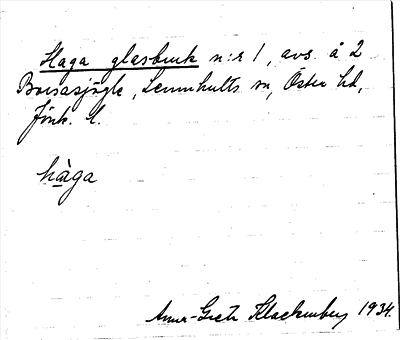 Haga glasbruk n:r 1, avs. å 2
Boisasjögle, Lemnhults sn, Öster hd,
Jönk. l.
hàga
Anna-Greta Klackenberg 1934.